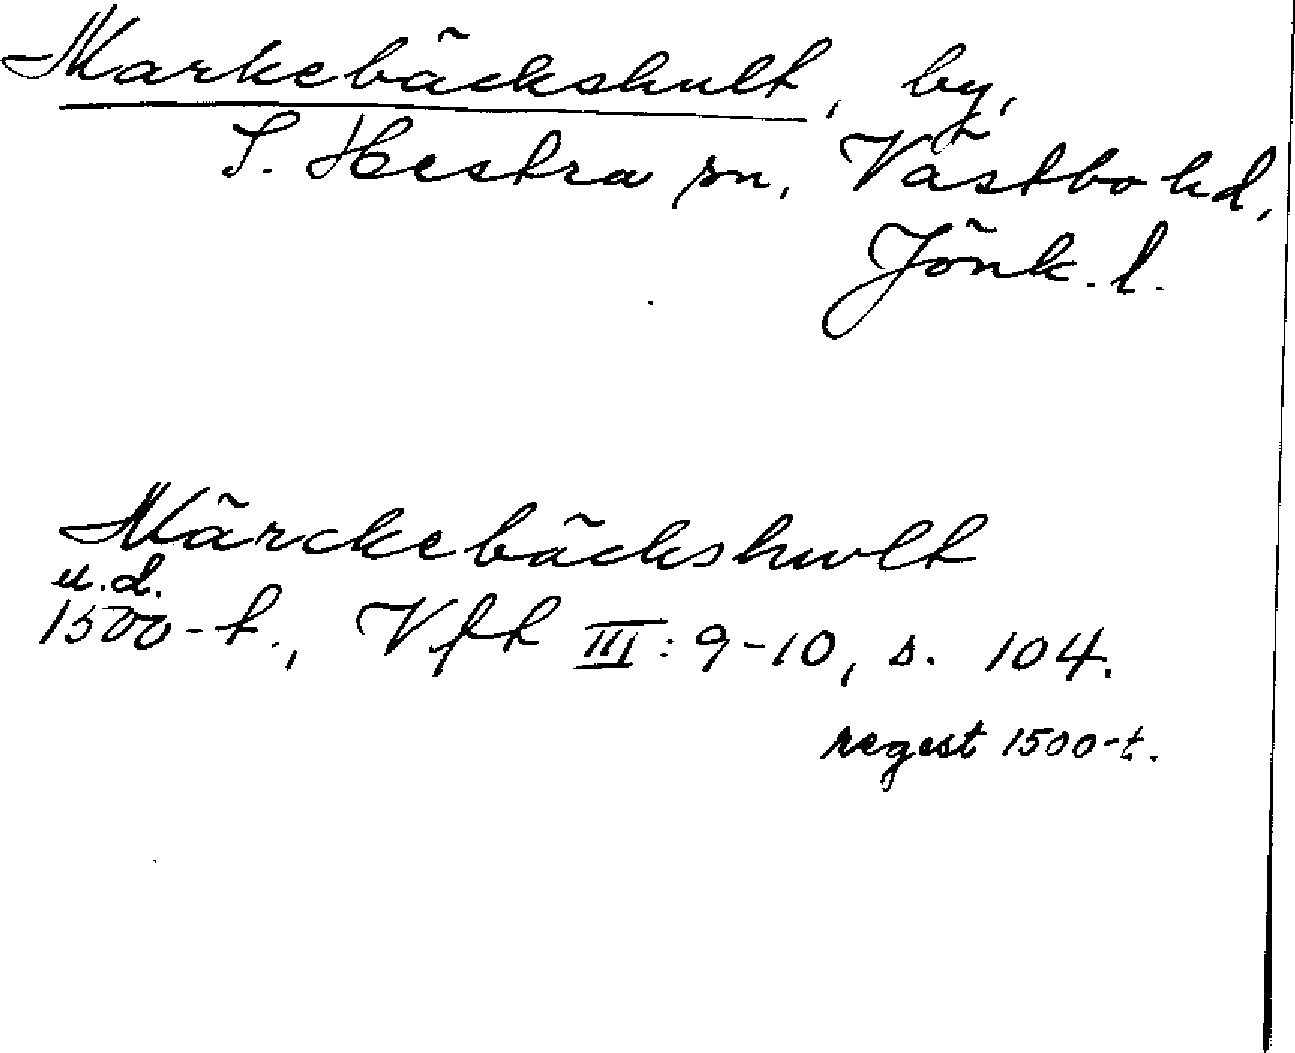 Markebäckshult, by,
S. Hestra sn, Västbo hd,
Jönk. l.
Märckebäckshwlt
u.d.
1500-t., Vft III: 9-10, s. 104.
regest 1500-t.